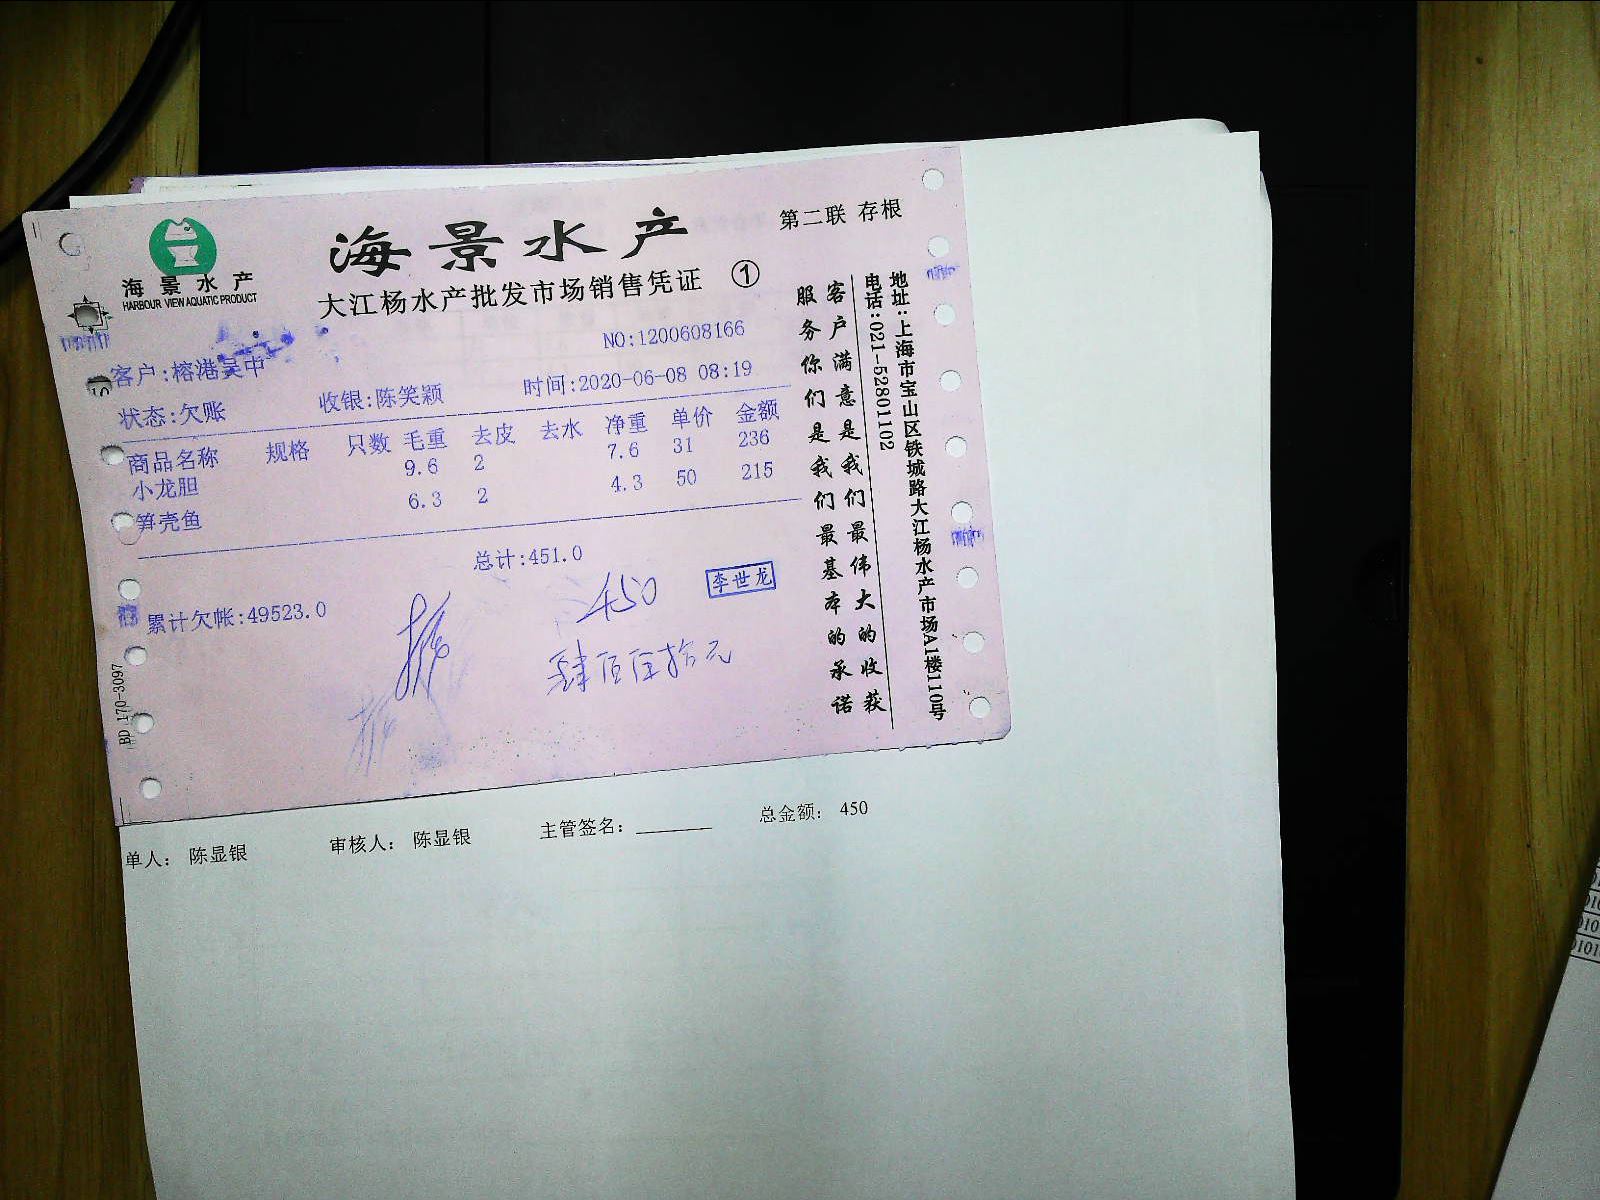 海景水产
HARBOUR VIEW AQUATIC PRODUCT
海景水产
第二联 存根
大江杨水产批发市场销售凭证 ①
NO:1200608166
客户:榕港吴中
状态:欠账 收银:陈笑颖 时间:2020-06-08 08:19
商品名称 规格 只数 毛重 去皮 去水 净重 单价 金额
小龙胆 9.6 2 7.6 31 236
笋壳鱼 6.3 2 4.3 50 215
总计:451.0
450
李世龙
累计欠帐:49523.0
肆佰伍拾元
BD 170-3097
客户满意是我们最伟大的收获
服务你们是我们最基本的承诺
地址:上海市宝山区铁城路大江杨水产市场A1楼110号
电话:021-52801102
单人: 陈显银 审核人: 陈显银 主管签名: 总金额: 450